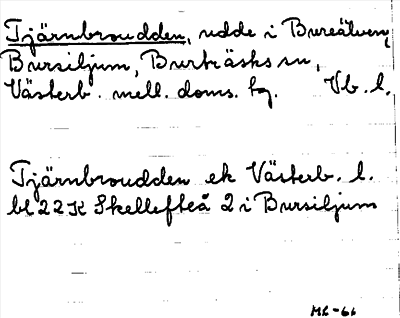 Tjärnbroudden, udde i Bureälven,
Bursiljum, Burträsks sn,
Västerb. mell. doms. tg. Vb. l.
Tjärnbroudden ek Västerb. l.
bl 22K Skellefteå 2 i Bursiljum
ML-66